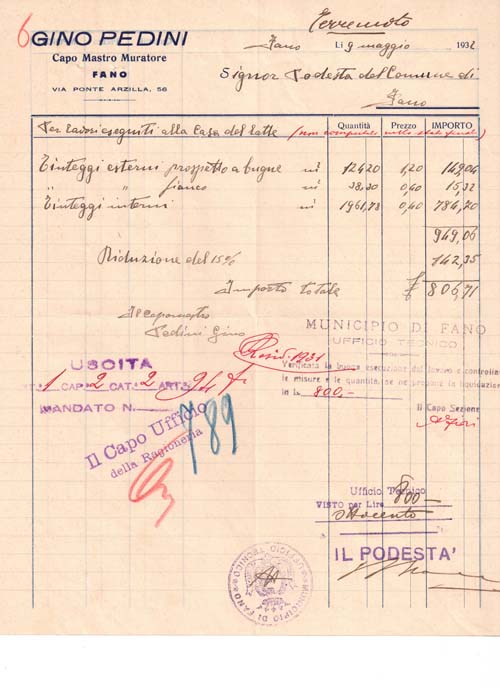 6
Terremoto
GINO PEDINI
Capo Mastro Muratore
FANO
VIA PONTE ARZILLA, 56
Fano Lì 9 maggio 1932
Signor Podestà del Comune di
Fano
Quantità Prezzo IMPORTO
Per lavori eseguiti alla Casa del latte (non computabili nello stato finale)
Tinteggi esterni prospetto a bugne m² 124,20 1,20 149,04
" " fianco m² 38,30 0,40 15,32
Tinteggi interni m² 1961,73 0,40 784,70
949,06
Riduzione del 15% 142,35
Importo totale £ 806,71
Il capomastro
Pedini Gino
MUNICIPIO DI FANO
UFFICIO TECNICO
Resid. 1931
Verificata la buona esecuzione del lavoro e controllate
le misure e le quantità, se ne propone la liquidazione
in L. 800,-
Il Capo Sezione
USCITA
TIT. 1 CAP. 2 CAT. 2 ART. 94
MANDATO N. 789
Il Capo Ufficio
della Ragioneria
Ufficio Tecnico
VISTO per Lire 800-
ottocento
IL PODESTA'
MUNICIPIO DI FANO
UFFICIO TECNICO